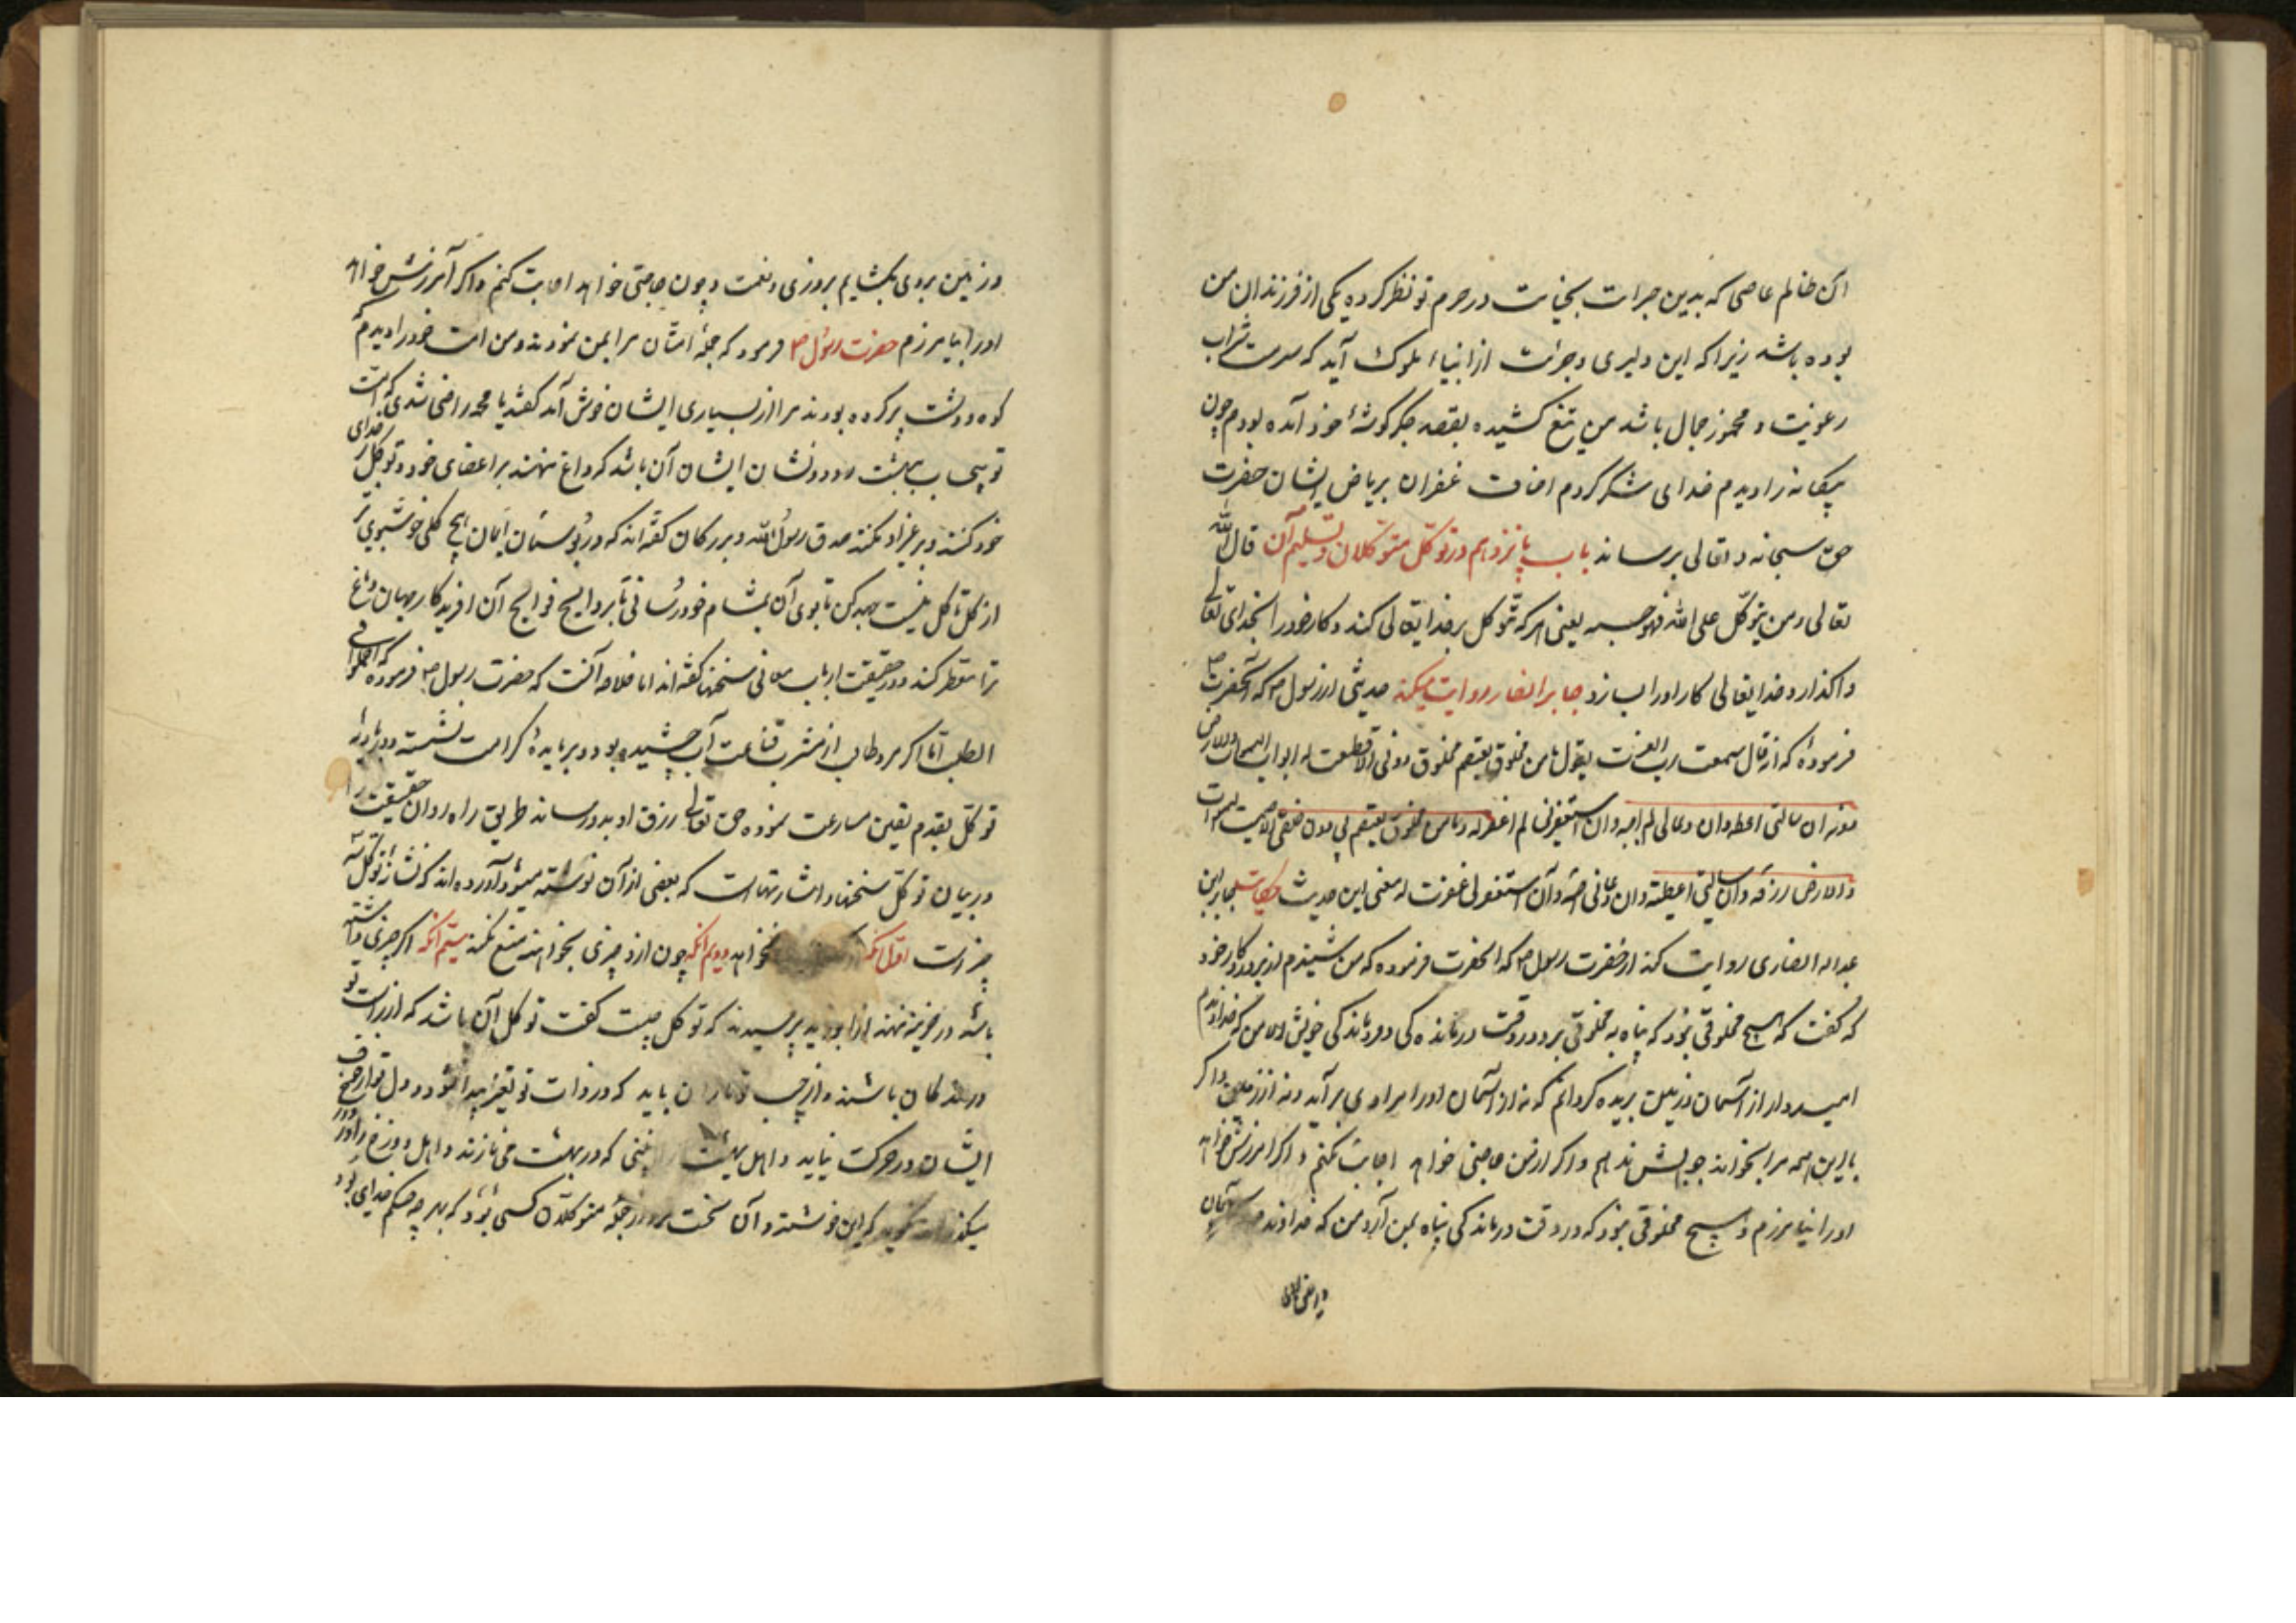 آن ظالم عاصی که بدین جرات بخیانت در حرم تو نظر کرده یکی از فرزندان من
بوده باشد زیرا که این دلیری و جرئت از ابناء ملوک آید که سرمست شراب
رعونیت و مخمور جمال باشد من تیغ کشیده بقصد جگر گوشهٔ خود آمده بودم چون
بیکانه را دیدم خدای شکر کردم غفران بریاض ایشان حضرت
حق سبحانه و تعالی برساند باب پانزدهم در توکّل متوکّلان و تسلیم آن قال الله
تعالی و من یتوکّل علی الله فهو حسبه یعنی هر که توکل بر خدایتعالی کند و کار خود را بخدای تعالی
واکذارد خدایتعالی کار او را بسازد جابر انصار روایت میکند حدیثی از رسول ص که آنحضرت ص
فرمودهٔ که قال سمعت رب العزت یقول ما من مخلوق یعتصم مخلوق دونی الا قطعت له ابواب السموات والارض
دونه ان سالنی اعطه وان دعانی لم اجبه وان استغفرنی لم اغفر له وما من مخلوق یعتصم بی دون خلقی الا ضمنت السموات
والارض رزقه وان سالنی اعطیته وان دعانی اجبته وان استغفرلی غفرت له معنی این حدیث حکایت جابر ابن
عبداله انصاری روایت کند از حضرت رسول ص که آنحضرت فرموده که من شنیدم از پروردکار خود
که کفت که هیچ مخلوقی نبود که پناه به مخلوقی برد در وقت درمانده کی و درماند کی خویش الا من که خداوندم
امیدوار از آسمان و زمین بریده کردانم که نه از آسمان او را مرادی برآید و نه از زمین و اکر
با این همه مرا بخواند جوابش ندهم و اکر از من حاجتی خواهد اجابت نکنم و اکر آمرزش خواهد
او را نیامرزم و هیچ مخلوقی نبود که در وقت درماند کی پناه بمن آرد من که خداوندم آسمان
و زمین بروی بکشایم بروزی و نعمت و چون حاجتی خواهد اجابت کنم و اکر آمرزش خواهد
او را بیامرزم حضرت رسول ص فرمود که جملهٔ امتان مرا بمن نمودند و من امت خود را دیدم که
کوه و دشت پر کرده بودند مرا از بسیاری ایشان خوش آمد کفتند یا محمد راضی شدی که امت
تو بیحساب ببهشت روند و نشان ایشان آن باشد که داغ ننهند بر اعضای خود و توکل بر خدای
خود کنند و بر غیر او نکنند صدق رسول الله و بزرکان کفته‌اند که در بوستان ایمان هیچ کلی خوشبوی تر
از کل توکل نیست جهد کن تا بوی آن بمشام خود رسانی تا بروایح فوایح آن آفریدکار جهان دماغ
ترا معطر کند و در حقیقت ارباب معانی سخنها کفته‌اند اما خلاصه آنست که حضرت رسول ص فرموده که اجملوا فی
الطلب امّا اکر مرد طالب از مشرب قناعت آب چشیده بود و بر مایدهٔ کرامت نشسته و در بادیهٔ
توکل بقدم یقین مسارعت نموده حق تعالی رزق او بدو رساند طریق راه روان حقیقت را
در بیان توکّل سخنها و اشارتهاست که بعضی از آن نوشته میشود آورده‌اند که نشان توکّل سه
چیز است اول آنکه نخواهد دویم آنکه چون ازو چیزی بخواهند منع نکند سیّم آنکه اکر چیزی داشته
باشد در خزینه ننهند از ابو یزید پرسیدند که توکل چیست کفت توکل آن باشد که از راست تو
درندکان باشند و از چپ تو ماران باید که در ذات تو تغیر پیدا نشود و دل تو از جای
ایشان در حرکت نیاید و اهل بهشت را بینی که در بهشت می نازند و اهل دوزخ را در
میکذراند نکوید که این خوشست و آن سخت مرد از جملهٔ متوکلان کسی بود که بهر چه حکم خدای بود